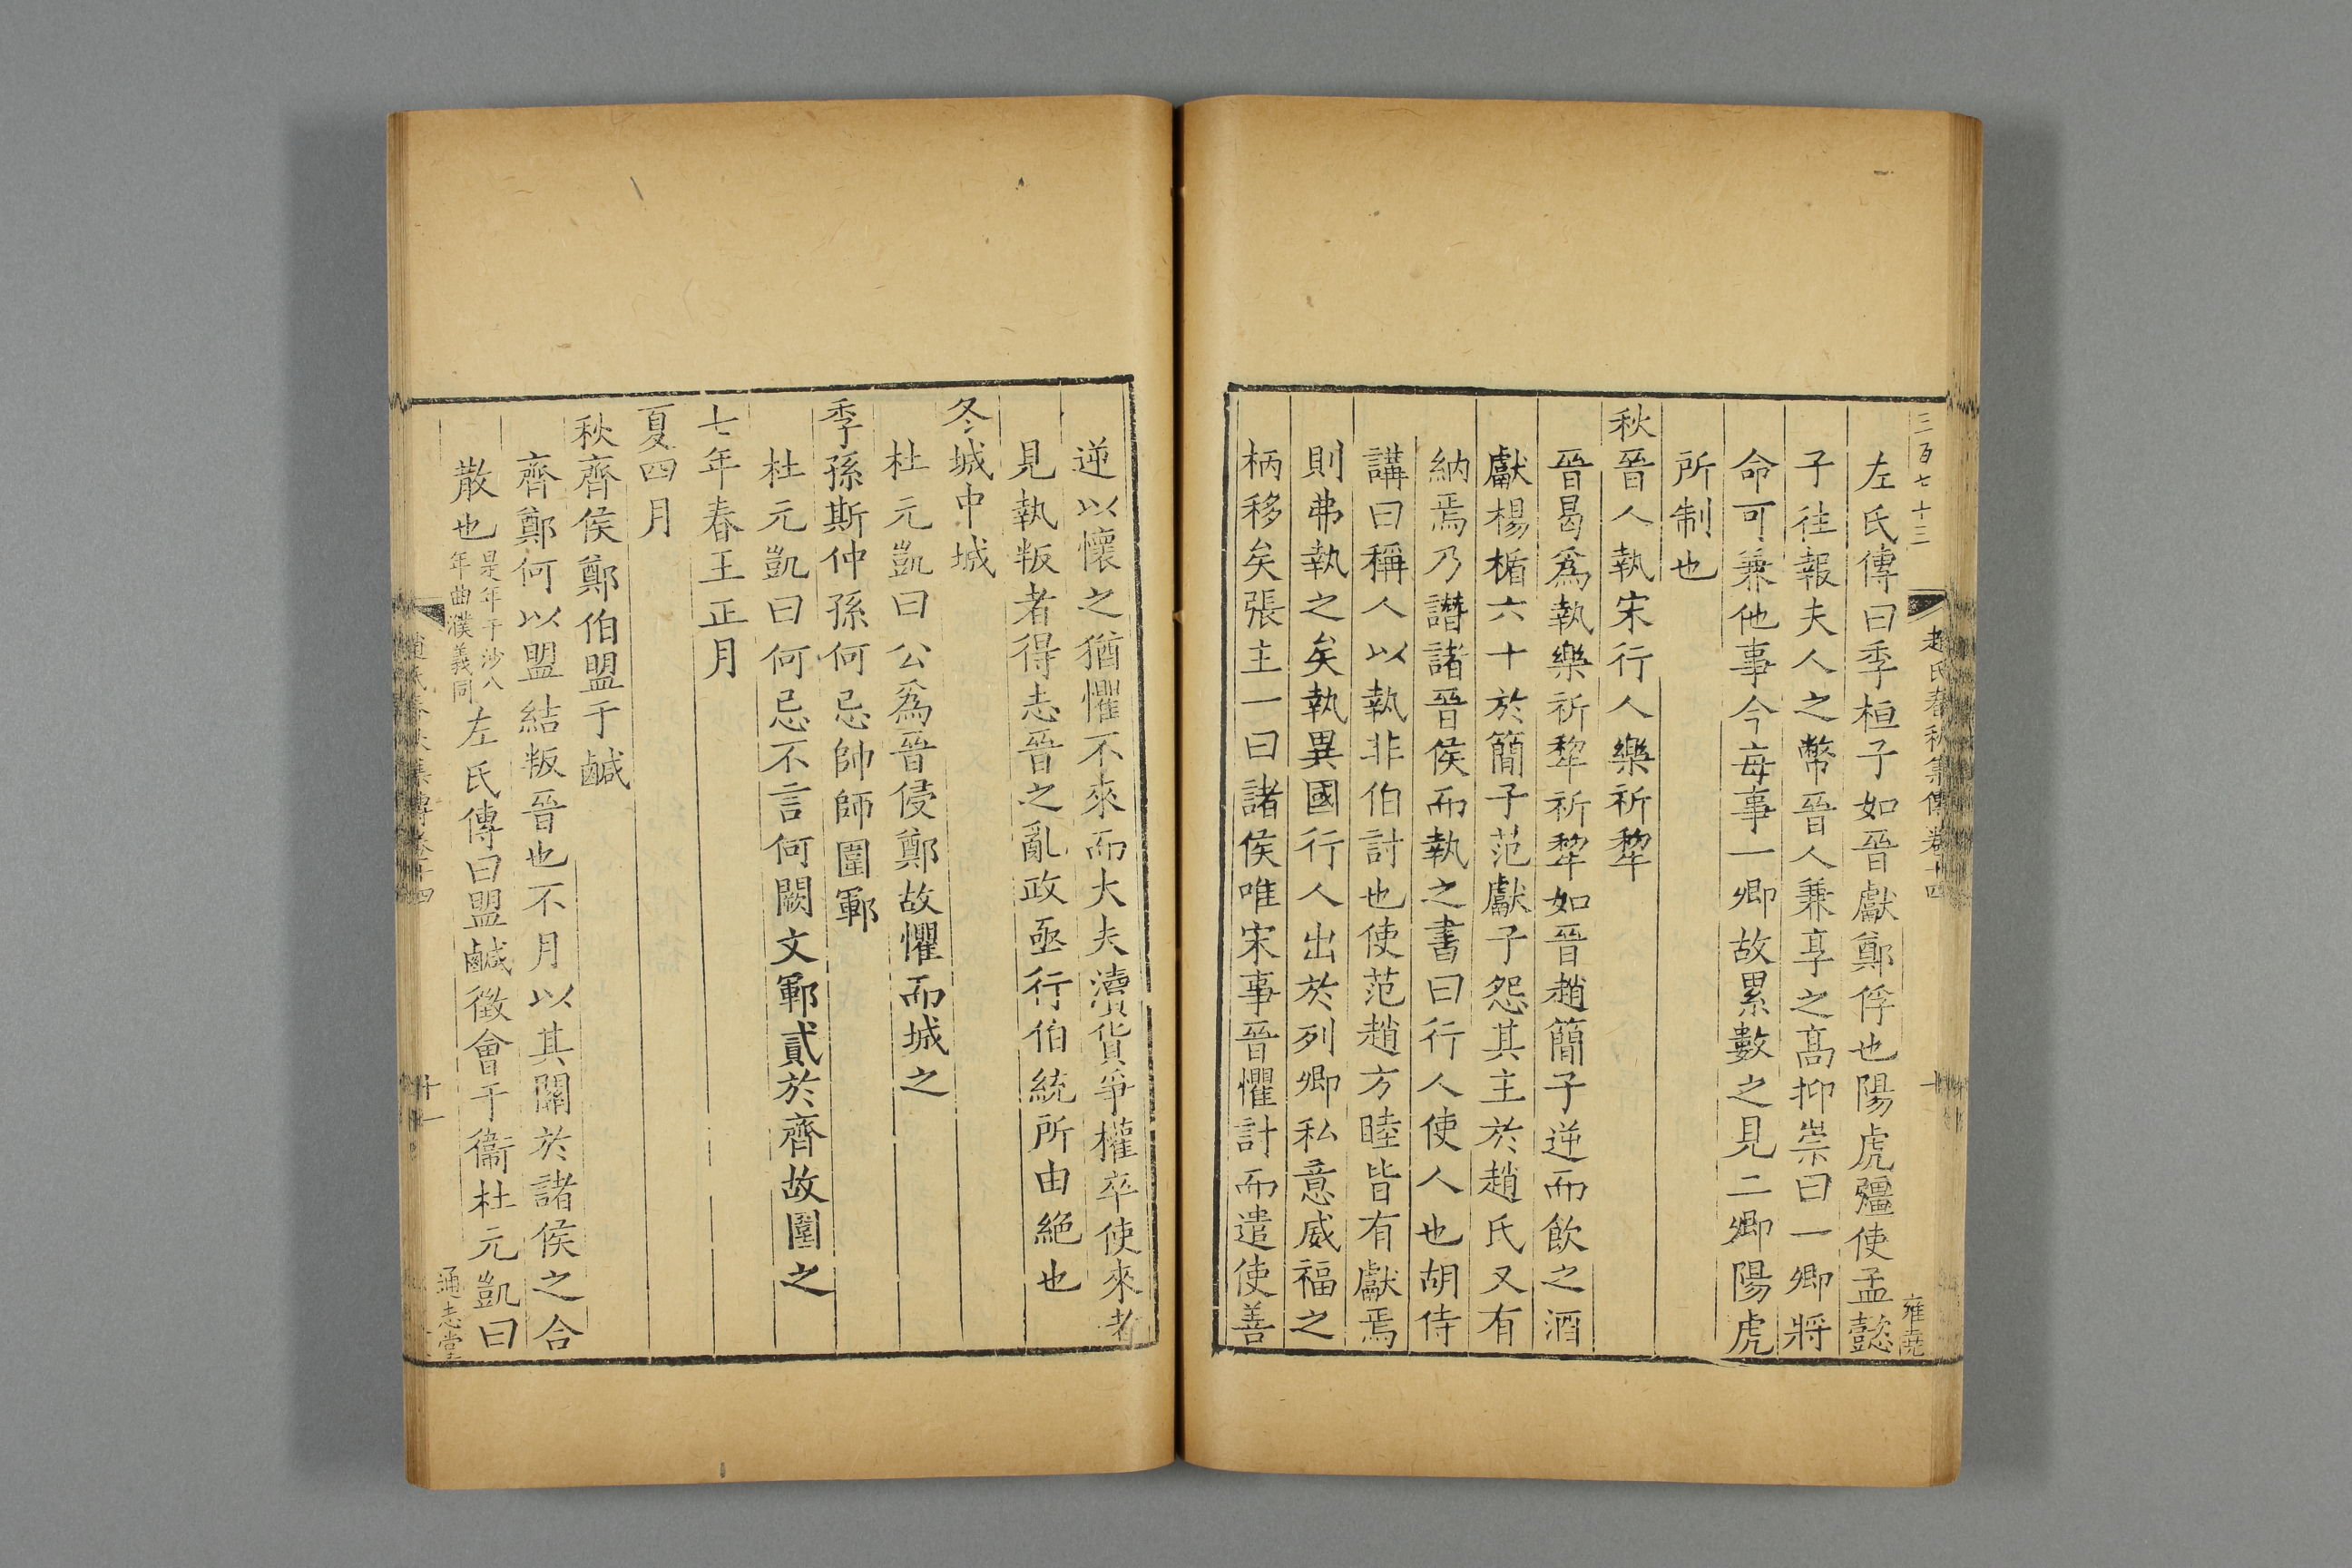 三百七十三
趙氏春秋集傳卷十四
雍堯
左氏傳曰季桓子如晉獻鄭俘也陽虎彊使孟懿
子往報夫人之幣晉人兼享之髙抑崇曰一卿將
命可兼他事今每事一卿故累數之見二卿陽虎
所制也
秋晉人執宋行人樂祈犂
晉曷爲執樂祈犂祈犂如晉趙簡子逆而飲之酒
獻楊楯六十於簡子范獻子怨其主於趙氏又有
納焉乃譖諸晉侯而執之書曰行人使人也胡侍
講曰稱人以執非伯討也使范趙方睦皆有獻焉
則弗執之矣執異國行人出於列卿私意威福之
柄移矣張主一曰諸侯唯宋事晉懼討而遣使善
逆以懷之猶懼不來而大夫瀆貨爭權卒使來者
見執叛者得志晉之亂政亟行伯統所由絕也
冬城中城
杜元凱曰公爲晉侵鄭故懼而城之
季孫斯仲孫何忌帥師圍鄆
杜元凱曰何忌不言何闕文鄆貳於齊故圍之
七年春王正月
夏四月
秋齊侯鄭伯盟于鹹
齊鄭何以盟結叛晉也不月以其關於諸侯之合
散也是年于沙八年曲濮義同左氏傳曰盟鹹徵會于衞杜元凱曰
十一
通志堂